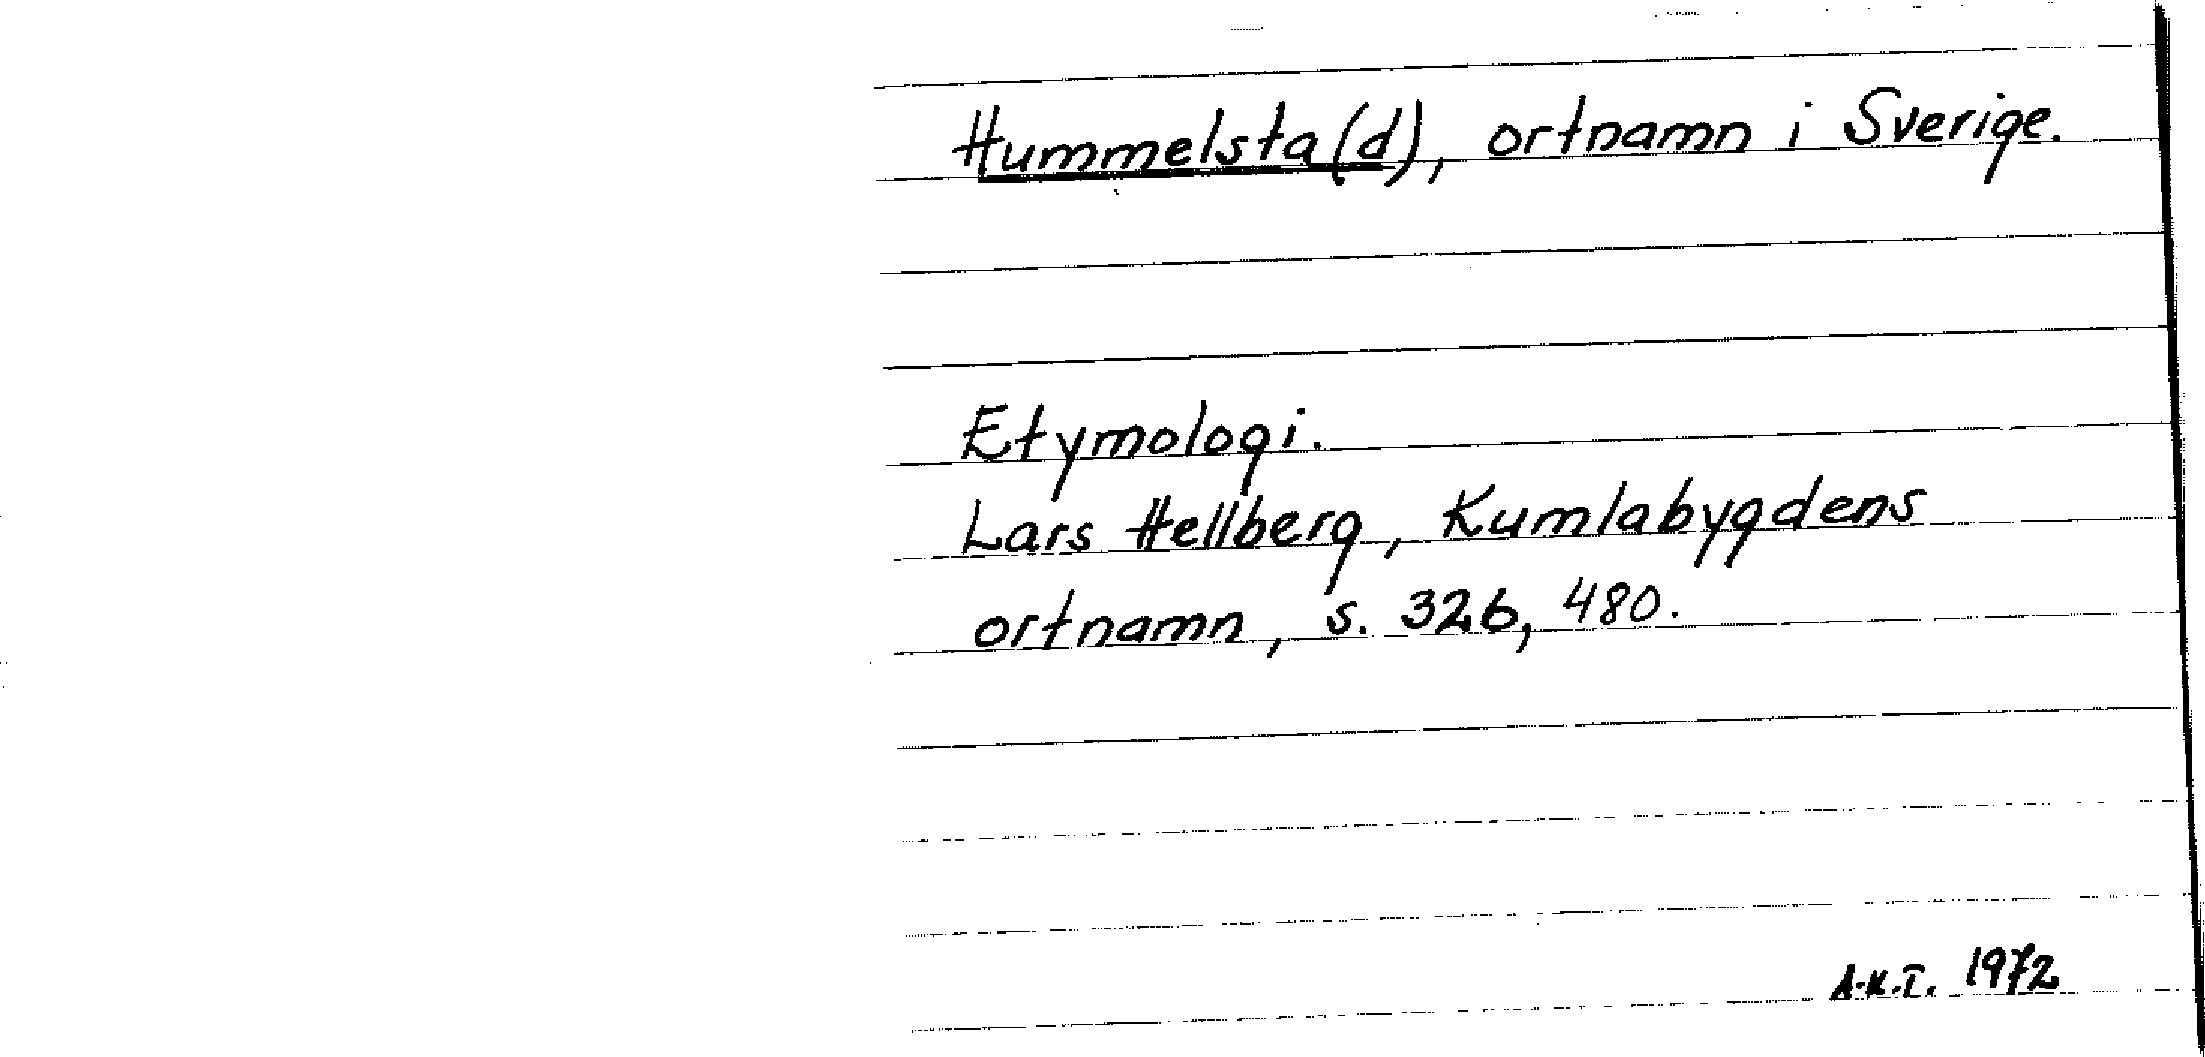 Hummelsta(d), ortnamn i Sverige.
Etymologi.
Lars Hellberg, Kumlabygdens
ortnamn, s. 326, 480.
A.K.T. 1972